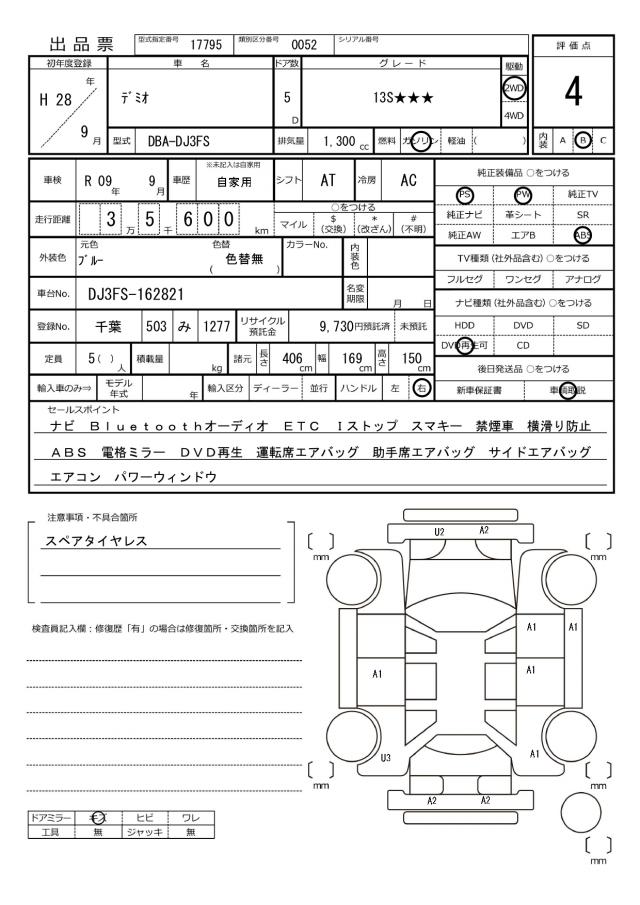 出品票 型式指定番号 17795 類別区分番号 0052 シリアル番号
評価点
4
初年度登録 車名 ドア数 グレード 駆動
H 28 年 9 月 デミオ 5 D 13S★★★ 2WD
4WD
型式 DBA-DJ3FS 排気量 1,300 cc 燃料 ガソリン 軽油 ( ) 内装 A B C
車検 R 09 年 9 月 車歴 ※未記入は自家用 自家用 シフト AT 冷房 AC
純正装備品 ○をつける
PS PW 純正TV
純正ナビ 革シート SR
純正AW エアB ABS
走行距離 3 万 5 千 6 0 0 km
○をつける
マイル $ (交換) * (改ざん) # (不明)
外装色 元色 ブルー 色替 ( 色替無 ) カラーNo. 内装色
TV種類(社外品含む)○をつける
フルセグ ワンセグ アナログ
車台No. DJ3FS-162821 名変期限 月 日
ナビ種類(社外品含む)○をつける
HDD DVD SD
DVD再生可 CD
登録No. 千葉 503 み 1277 リサイクル預託金 9,730円預託済 未預託
定員 5 ( ) 人 積載量 kg 諸元 長さ 406 cm 幅 169 cm 高さ 150 cm
後日発送品 ○をつける
新車保証書 車輌取説
輸入車のみ⇒ モデル年式 年 輸入区分 ディーラー 並行 ハンドル 左 右
セールスポイント
ナビ Bluetoothオーディオ ETC Iストップ スマキー 禁煙車 横滑り防止
ABS 電格ミラー DVD再生 運転席エアバッグ 助手席エアバッグ サイドエアバッグ
エアコン パワーウィンドウ
注意事項・不具合箇所
スペアタイヤレス
検査員記入欄：修復歴「有」の場合は修復箇所・交換箇所を記入
ドアミラー キズ ヒビ ワレ
工具 無 ジャッキ 無
U2 A2
mm mm
A1 A1
A1 A1
U3 A1
mm mm
A2 A2
mm